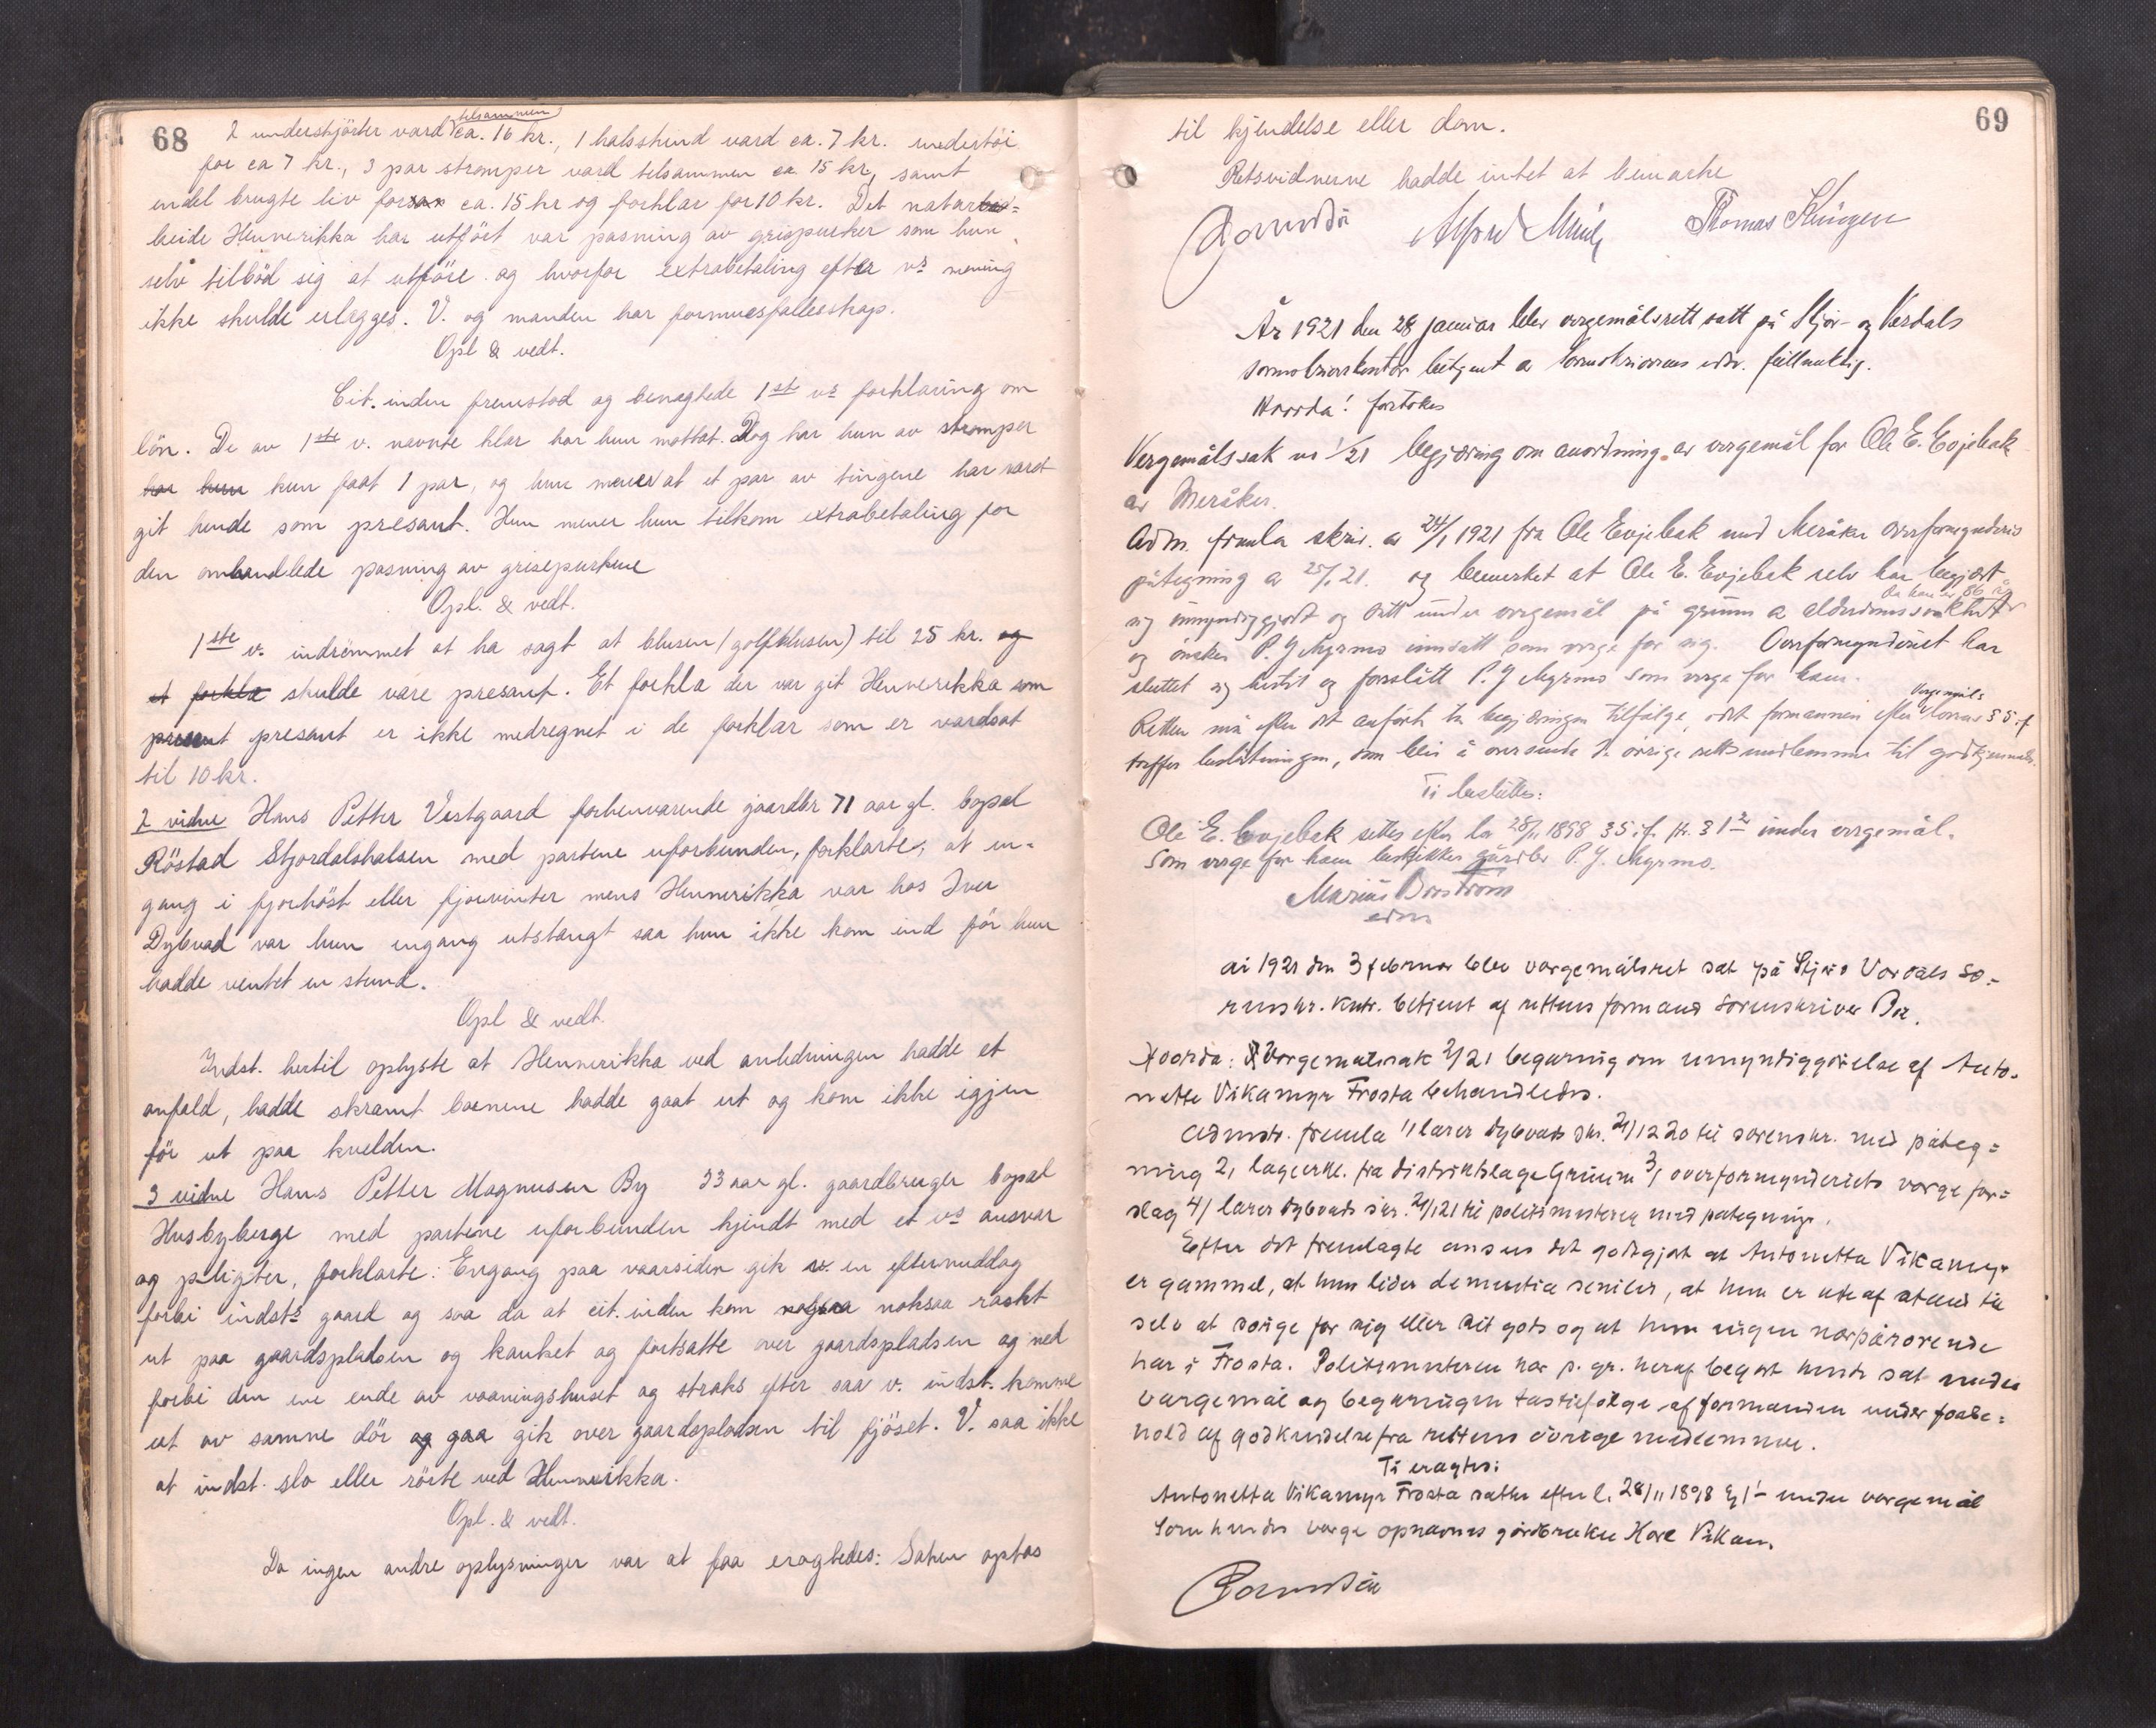 68
2 underskjörter værd tilsammen ca. 16 kr., 1 halsskind værd ca. 7 kr. undertöi
for ca 7 kr., 3 par strømper værd tilsammen ca 15 kr, samt
endel brugte liv for ca. 15 kr og forklær for 10 kr. Det natar-
beide Hennerikka har utfört var pasning av grispurker som hun
selv tilböd sig at utföre og hvorfor extrabetaling efter vs mening
ikke skulde erlægges. V. og manden har formuesfællesskap.
Opl & vedt.
Cit. inden fremstod og benegtede 1ste vs forklaring om
lön. De av 1ste v. nævnte klær har hun mottat. Dog har hun av strømper
har hun kun faat 1 par, og hun mener at et par av tingene har været
git hende som presant. Hun mener hun tilkom extrabetaling for
den omhandlede pasning av grisepurkene
Opl. & vedt.
1ste v. indrömmet at ha sagt at blusen (golfblusen) til 25 kr. og
et forklæ skulde være presant. Et forklæ der var git Hennerikka som
presant presant er ikke medregnet i de forklær som er værdsat
til 10 kr.
2 vidne Hans Petter Vestgaard forhenværende gaardbr 71 aar gl. bopæl
Röstad Stjordalshalsen med partene uforbunden, forklarte, at en-
gang i fjorhöst eller fjorvinter mens Hennerikka var hos Iver
Dybvad var hun engang utstængt saa hun ikke kom ind för hun
hadde ventet en stund.
Opl & vedt.
Indst. hertil oplyste at Hennerikka ved anledningen hadde et
anfald, hadde skræmt barnene hadde gaat ut og kom ikke igjen
för ut paa kvelden.
3 vidne Hans Petter Magnusen By 33 aar gl. gaardbruger bopæl
Husbyberge med partene uforbunden kjendt med et vs ansvar
og pligter, forklarte: Engang paa vaarsiden gik v. en eftermeddag
forbi indsts gaard og saa da at cit. inden kom noksaa noksaa raskt
ut paa gaardspladsen og kauket og fortsatte over gaardspladsen og ned
forbi den ene ende av vaaningshuset og straks efter saa v. indst. komme
ut av samme dör og gaa gik over gaardspladsen til fjöset. V. saa ikke
at indst. slo eller rörte ved Hennerikka.
Opl. & vedt.
Da ingen andre oplysninger var at faa eragtedes: Saken optas
69
til kjendelse eller dom.
Retsvidnerne hadde intet at bemærke
Thomas Klungen
År 1921 den 28 januar blev vergemålsrett satt på Stjør- og Værdals
sorenskriverkontor betjent av sorenskriverens edsv. fullmektig.
Hvorda! foretokes
Vergemålssak nr 1/21 begjæring om anordning av vergemål for Ole E. Evjebak
av Meråker.
Adm. fremla skriv. av 24/1 1921 fra Ole Evjebak med Meråker overformynderis
påtegning av 25/1 21. og bemerket at Ole E. Evjebak selv har begjært
sig umyndiggjort og satt under vergemål på grunn av alderdomssvakhet da han er 86 år
og ønsker P. J. Myrmo innsatt som verge for sig. Overformynderiet har
sluttet sig hertil og foreslått P. J. Myrmo som verge for ham.
Retten må efter det anførte ta begjæringen tilfølge, idet formannen efter Vergemåls lovens § 5 if
treffer beslutningen, som blir å oversende de øvrige rettsmedlemmer til godkjennelse.
Ti besluttes:
Ole E. Evjebak settes efter lov 28/11 1898 § 5 if. jfr. § 1 2 under vergemål.
Som verge for ham beskikkes gårdbr P. J. Myrmo.
Marius Brostrøm
edsv
år 1921 den 3 februar blev vergemålsret sat på Stjør & Værdals so-
renskr. kntr. betjent af rettens formand sorenskriver Bø.
Hvorda: Vergemålssak 2/21 begæring om umyndiggørelse af Anto-
nette Vikamyr Frosta behandledes.
Admstr. fremla 1) lærer Dybvads skr. 21/12 20 til sorenskr. med påteg-
ning 2, lægeerkl. fra distriktslæge Gruum 3, overformynderiets verge for-
slag 4) lærer Dybvads skr. 21/1 21 til politimesteren med påtegning.
Efter det fremlagte ansees det godtgjort at Antonetta Vikamyr
er gammel, at hun lider dementia senilis, at hun er ute af stand til
selv at sørge for sig eller sit gods og at hun ingen nærpårørende
har i Frosta. Politimesteren har p. gr. heraf begært hende sat under
vergemål og begæringen tastilfølge af formanden under forbe-
hold af godkendelse fra rettens øvrige medlemmer.
Ti eragtes:
Antonetta Vikamyr Frosta sættes efter l. 28/11 1898 § 1 1 under vergemål
Som hendes verge opnævnes gårdbruker Kare Vikan.